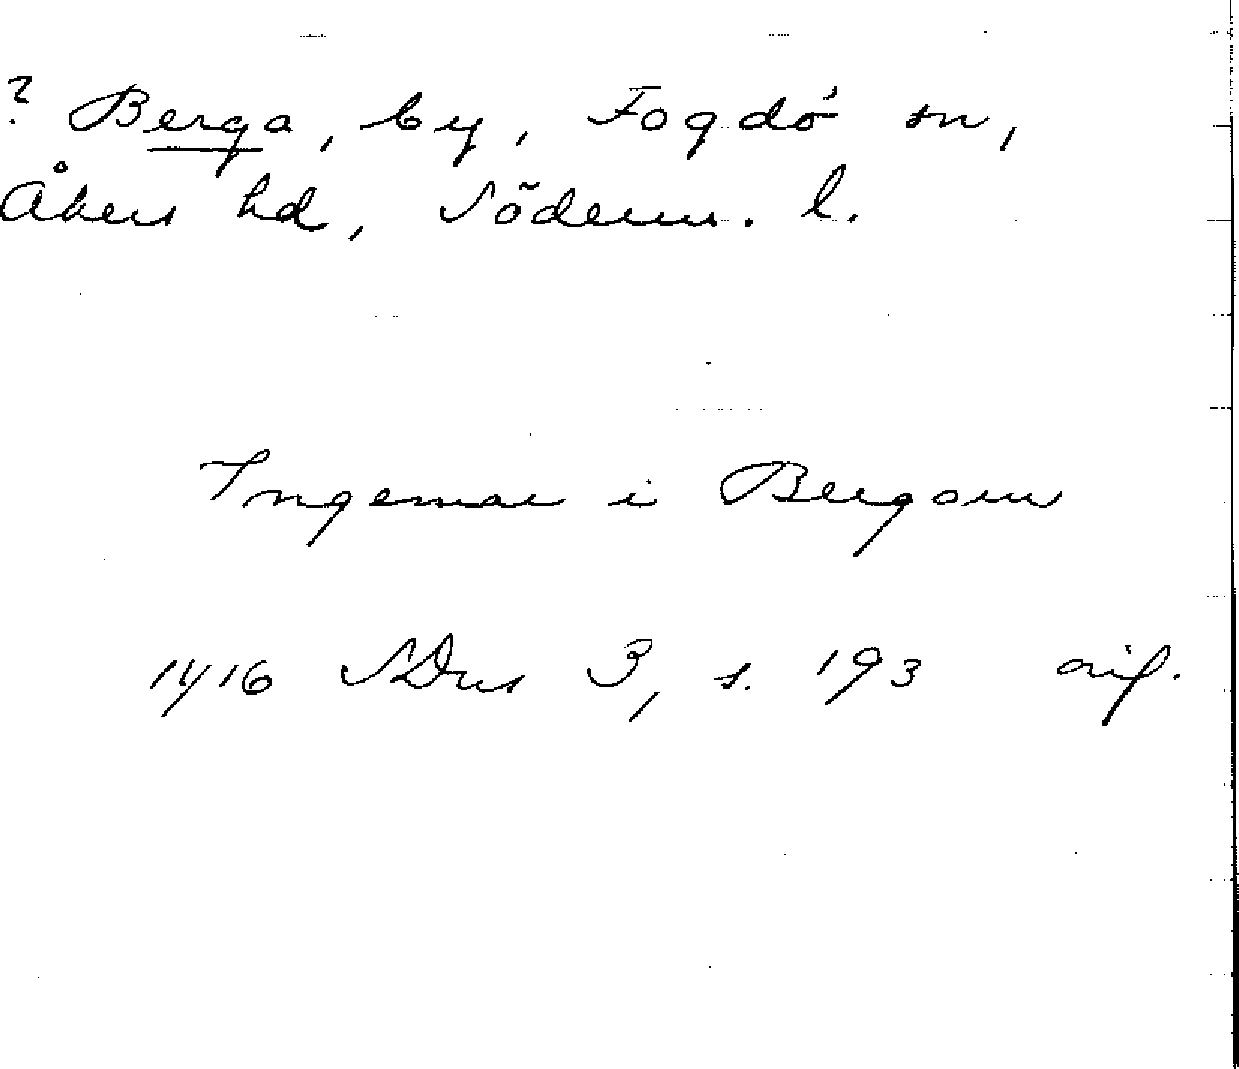 ? Berga, by, Fogdö sn,
Åkers hd, Söderm. l.
Ingemar i Bergom
1416 SDns 3, s. 193 avs.